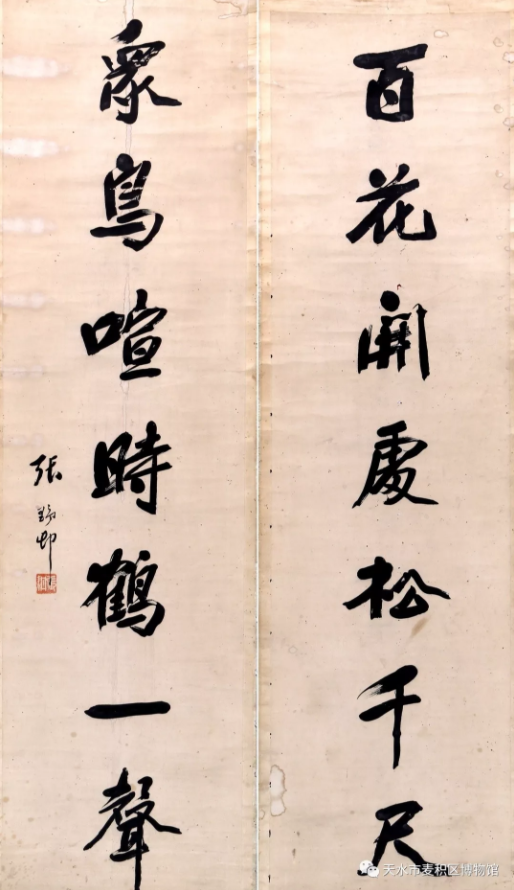 百花開處松千尺
衆鳥喧時鶴一聲
張邨
天水市麦积区博物馆